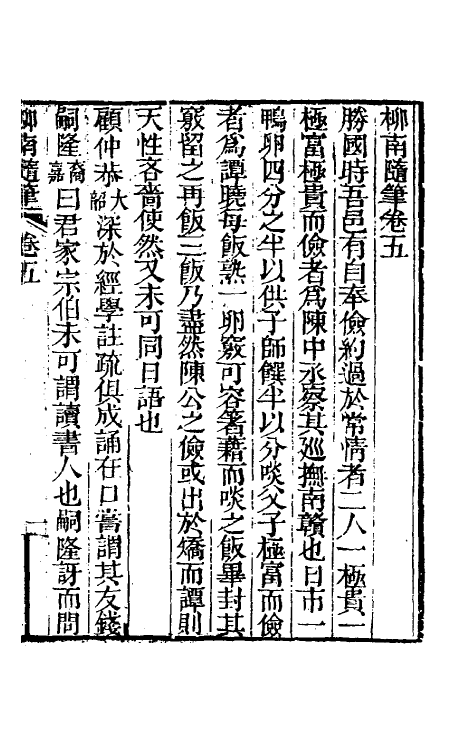 柳南隨筆卷五
勝國時吾邑有自奉儉約過於常情者二人一極貴一
極富極貴而儉者爲陳中丞察其巡撫南贛也日市一
鴨卵四分之半以供子師饌半以分啖父子極富而儉
者爲譚曉每飯熟一卵竅可容箸藉而啖之飯畢封其
竅留之再飯三飯乃盡然陳公之儉或出於矯而譚則
天性吝嗇使然又未可同日語也
顧仲恭大韶深於經學註疏俱成誦在口嘗謂其友錢
嗣隆裔嘉曰君家宗伯未可謂讀書人也嗣隆訝而問
柳南隨筆 卷五 一